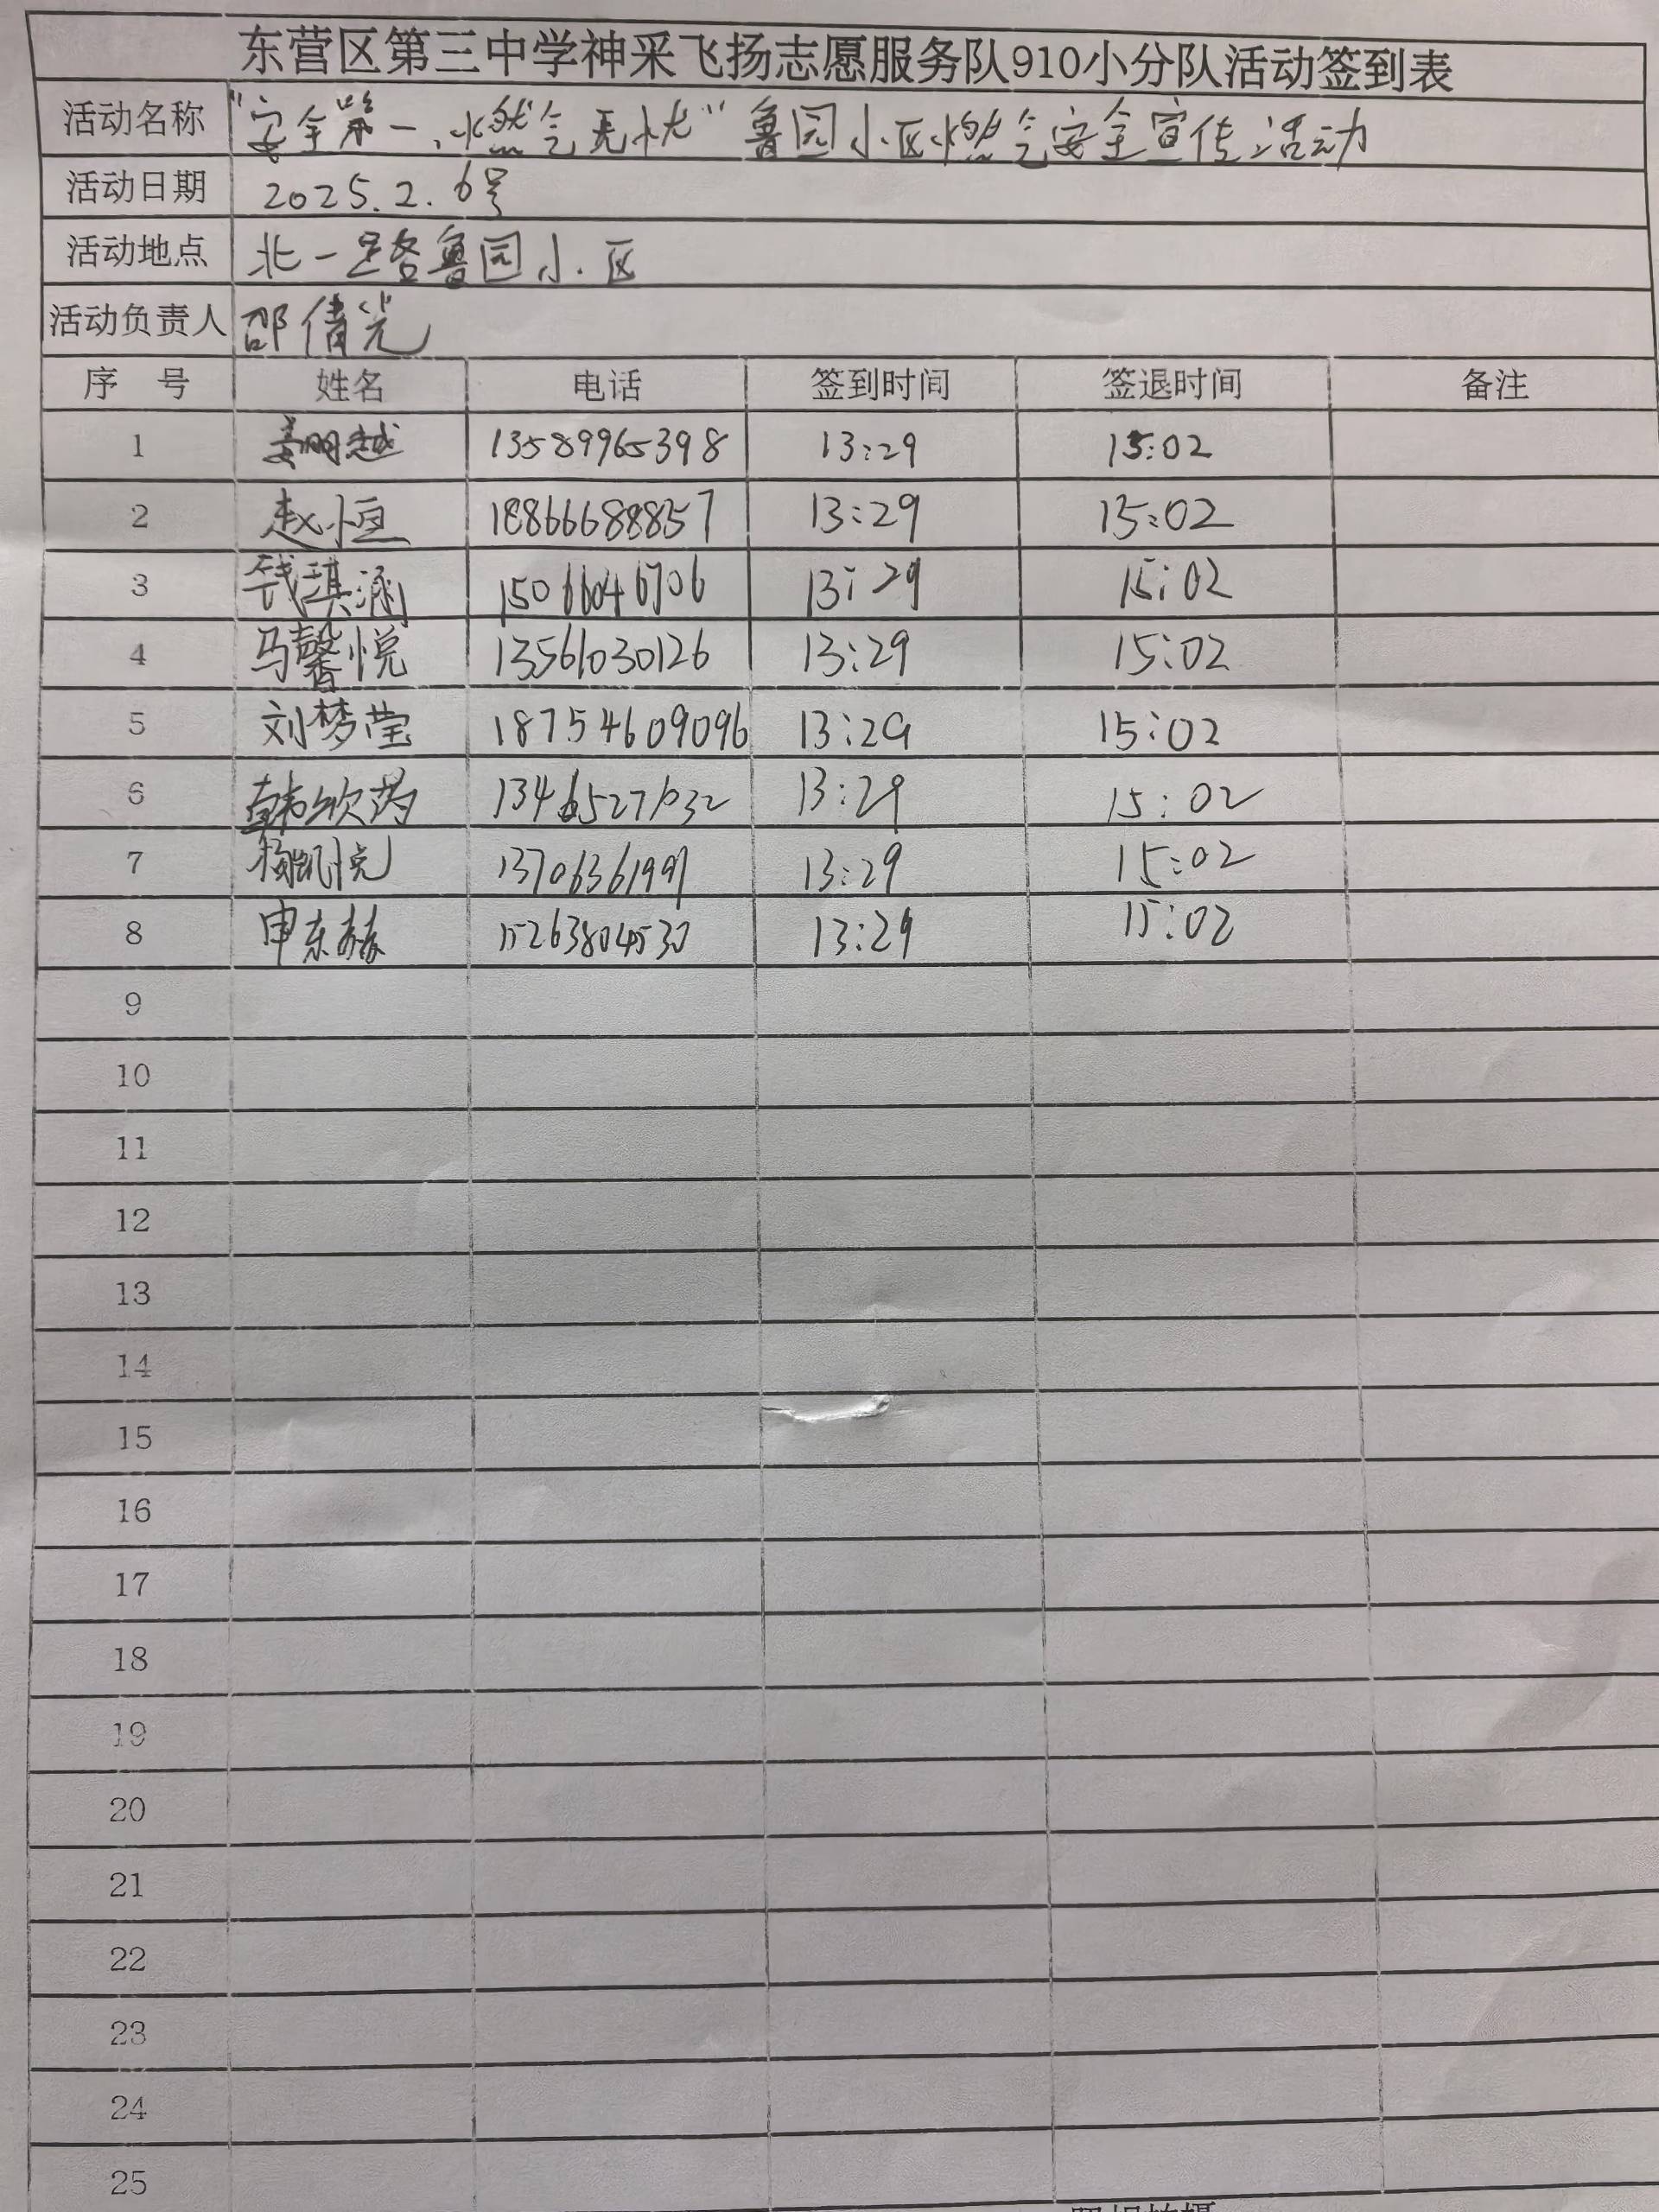 东营区第三中学神采飞扬志愿服务队910小分队活动签到表
活动名称 "安全第一、燃气无忧"鲁园小区燃气安全宣传活动
活动日期 2025.2.6号
活动地点 北一路鲁园小区
活动负责人 邵倩
序 号 姓名 电话 签到时间 签退时间 备注
1 姜明越 13589965398 13:29 15:02
2 赵恒 18866688857 13:29 15:02
3 钱琪涵 15066046706 13:29 15:02
4 马馨悦 13561030126 13:29 15:02
5 刘梦莹 18754609096 13:29 15:02
6 韩欣芮 13465271032 13:29 15:02
7 杨凯悦 13706361991 13:29 15:02
8 申东赫 15263804530 13:29 15:02
9
10
11
12
13
14
15
16
17
18
19
20
21
22
23
24
25